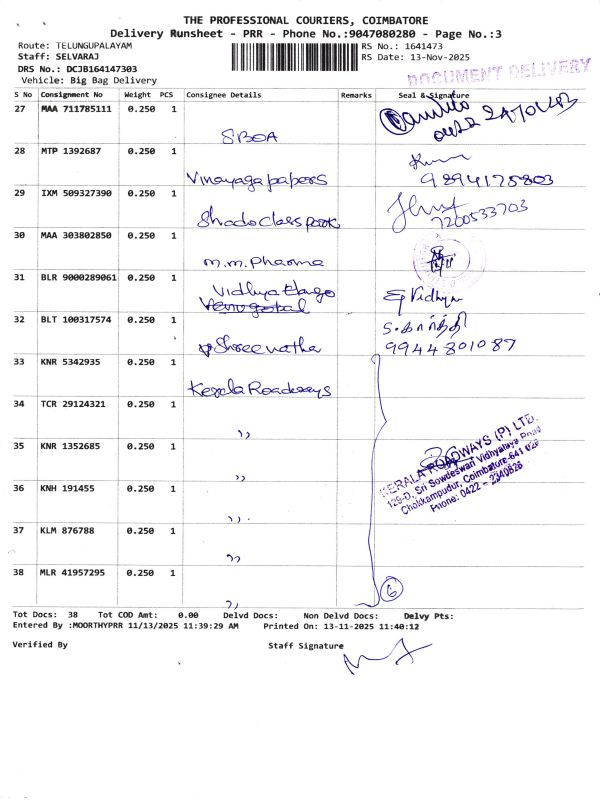 THE PROFESSIONAL COURIERS, COIMBATORE
Delivery Runsheet - PRR - Phone No.:9047080280 - Page No.:3
Route: TELUNGUPALAYAM RS No.: 1641473
Staff: SELVARAJ RS Date: 13-Nov-2025
DRS No.: DCJB164147303
Vehicle: Big Bag Delivery
DOCUMENT DELIVERY
S No Consignment No Weight PCS Consignee Details Remarks Seal & Signature
27 MAA 711785111 0.250 1
SBOA
0422
28 MTP 1392687 0.250 1
Vinayaga papers 9894175803
29 IXM 509327390 0.250 1
7200533703
30 MAA 303802850 0.250 1
m.m. Pharma
31 BLR 9000289061 0.250 1
Vidhya
Venugopal
32 BLT 100317574 0.250 1 S.கார்த்தி
Shree natha 9944801087
33 KNR 5342935 0.250 1
Kerala Roadways
34 TCR 29124321 0.250 1
,,
35 KNR 1352685 0.250 1
,,
36 KNH 191455 0.250 1
,,
37 KLM 876788 0.250 1
,,
38 MLR 41957295 0.250 1
,,
6
KERALA ROADWAYS (P) LTD.
129-D, Sri Sowdeswari Vidhyalaya Road
Chokkampudur, Coimbatore-641 029
Phone: 0422 - 2340826
Tot Docs: 38 Tot COD Amt: 0.00 Delvd Docs: Non Delvd Docs: Delvy Pts:
Entered By :MOORTHYPRR 11/13/2025 11:39:29 AM Printed On: 13-11-2025 11:40:12
Verified By Staff Signature